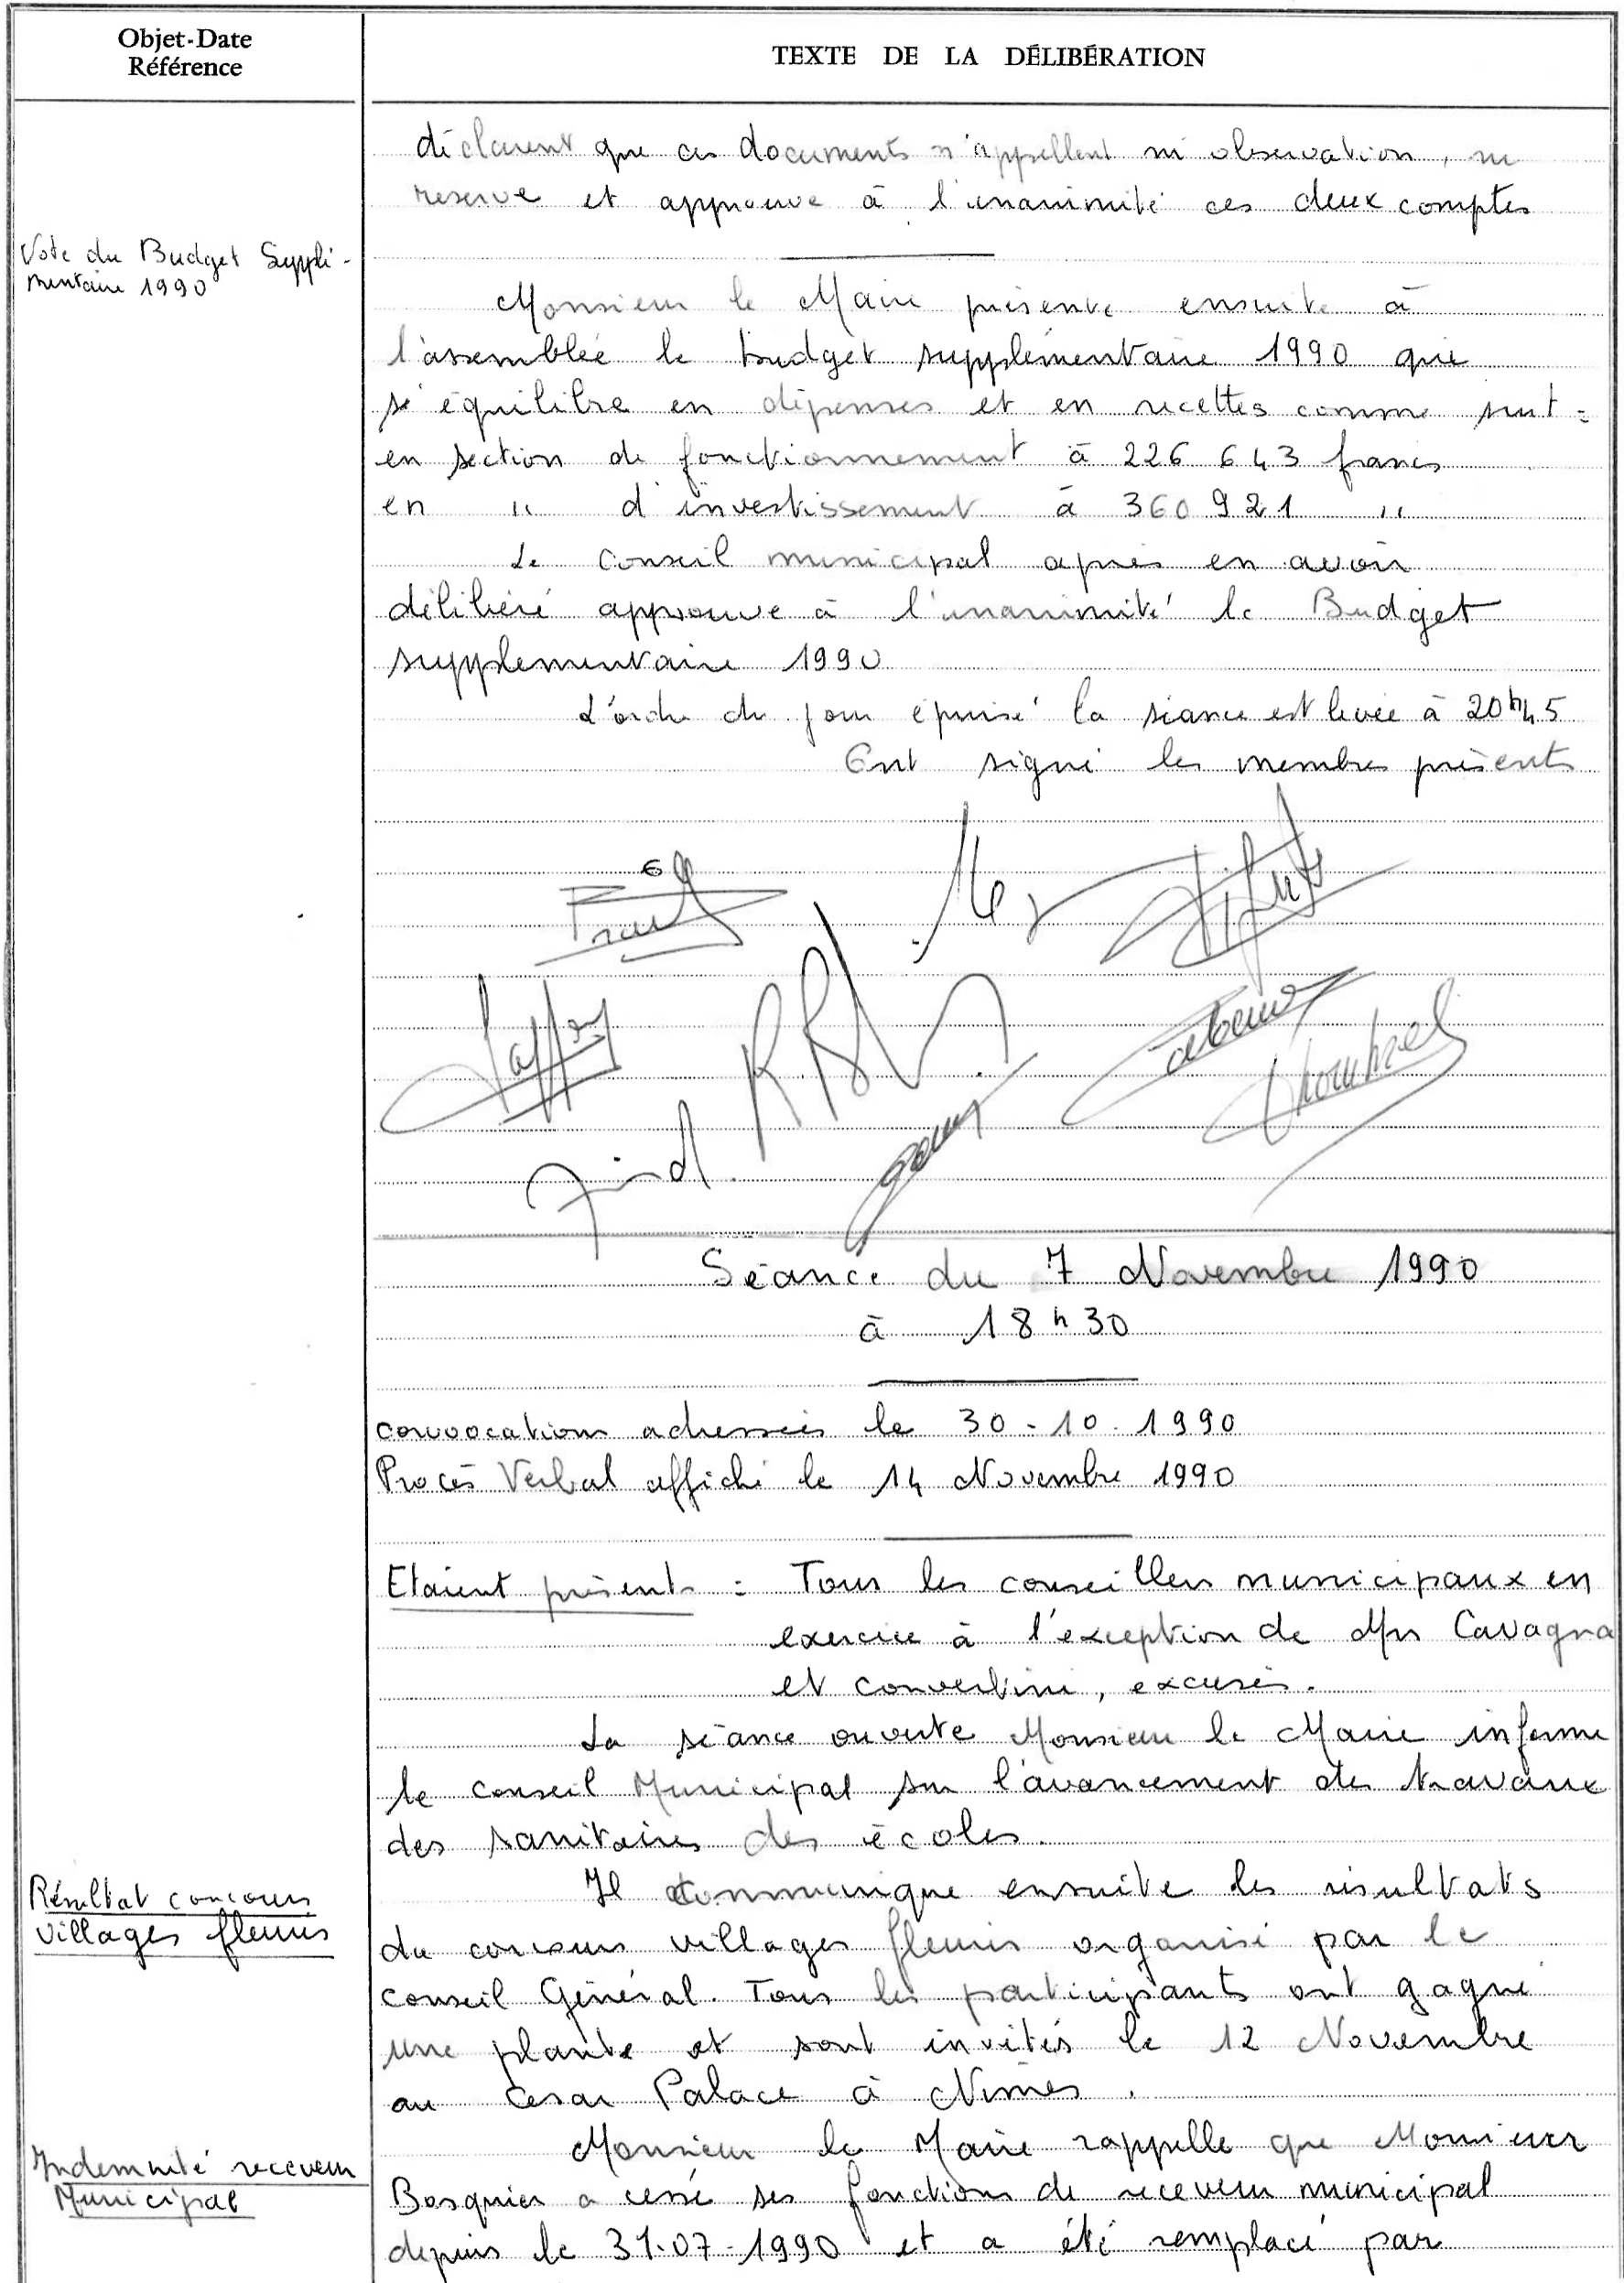 Objet-Date
Référence
TEXTE DE LA DÉLIBÉRATION
déclarent que ces documents n'appellent ni observation, ni
reserve et approuve à l'unanimité ces deux comptes
Vote du Budget Supplé-
mentaire 1990
Monsieur le Maire présente ensuite à
l'assemblée le budget supplémentaire 1990 qui
s'équilibre en dépenses et en recettes comme suit :
en section de fonctionnement à 226 643 francs
en " d'investissement à 360 921 "
Le Conseil municipal après en avoir
délibéré approuve à l'unanimité le Budget
supplementaire 1990
L'ordre du jour épuisé la séance est levée à 20h45
Ont signé les membres présents
Séance du 7 Novembre 1990
à 18 h 30
convocations adressées le 30-10-1990
Procès Verbal affiché le 14 Novembre 1990
Etaient présents : Tous les conseillers municipaux en
exercice à l'exception de Mrs Cavagna
et Convertini, excusés.
La séance ouverte Monsieur le Maire informe
le conseil Municipal sur l'avancement des travaux
des sanitaires des écoles.
Résultat concours
villages fleuris
Il communique ensuite les résultats
du concours villages fleuris organisé par le
Conseil Général. Tous les participants ont gagné
une plante et sont invités le 12 Novembre
au Cesar Palace à Nimes.
Indemnité receveur
Municipal
Monsieur le Maire rappelle que Monsieur
Bosquier a cessé ses fonctions de receveur municipal
depuis le 31-07-1990 et a été remplacé par